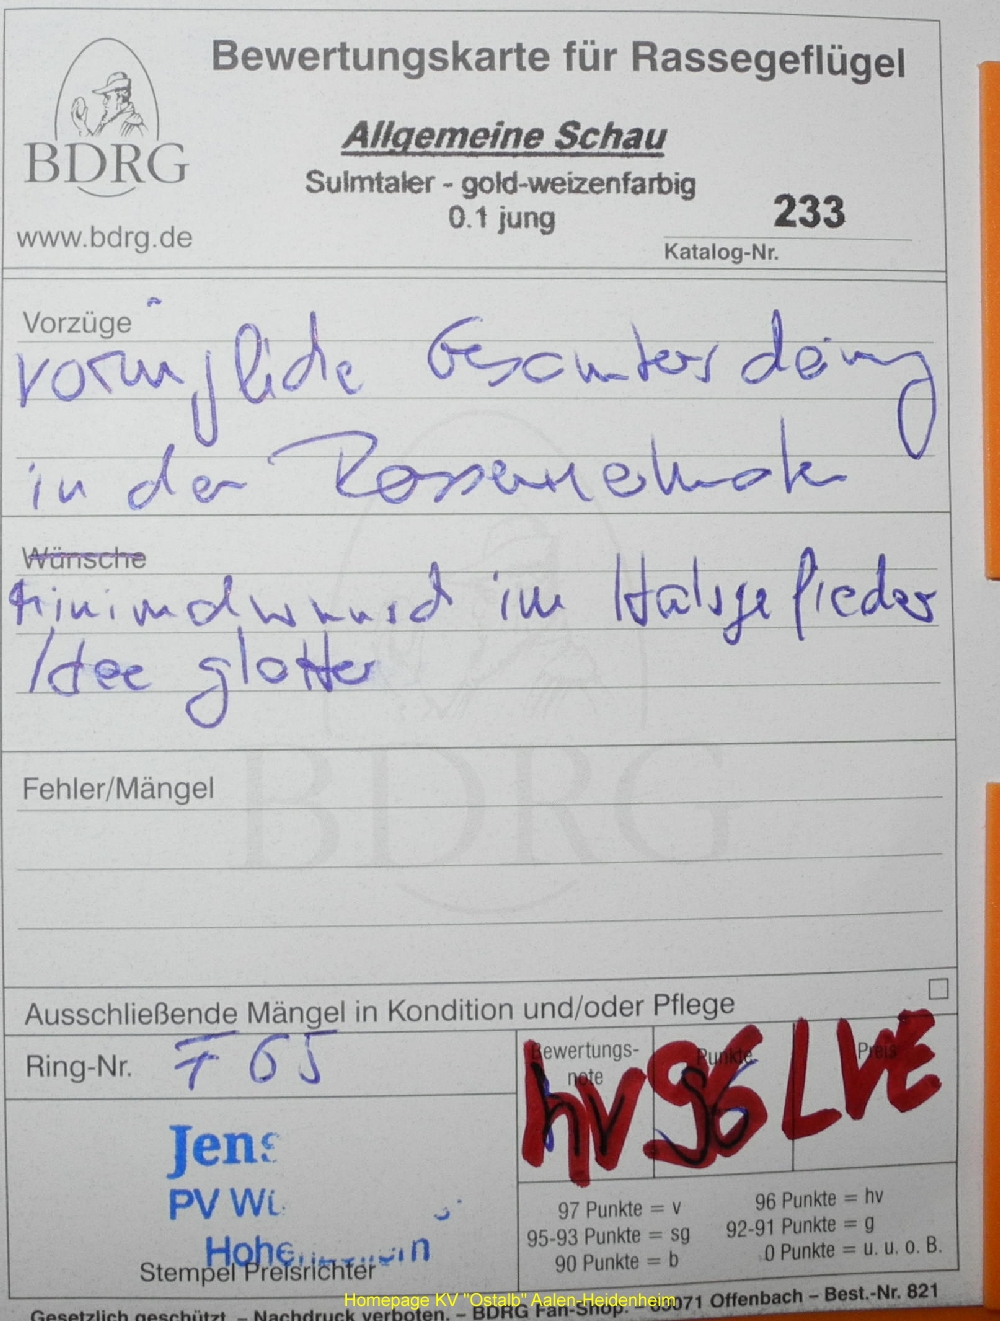 Bewertungskarte für Rassegeflügel
BDRG
www.bdrg.de
Allgemeine Schau
Sulmtaler - gold-weizenfarbig
0.1 jung
233
Katalog-Nr.
Vorzüge
vorzügliche
in der
Wünsche
Minimalwunsch im Halsgefieder
Idee glatter
BDRG
Fehler/Mängel
Ausschließende Mängel in Kondition und/oder Pflege
Ring-Nr. F 65
Bewertungs-
note
Punkte
Preis
hv 96 LVE
Jens
PV
Stempel Preisrichter
97 Punkte = v
96 Punkte = hv
95-93 Punkte = sg
92-91 Punkte = g
90 Punkte = b
0 Punkte = u. u. o. B.
Homepage KV "Ostalb" Aalen-Heidenheim
Gesetzlich geschützt. – Nachdruck verboten. – BDRG Fan-Shop. 63071 Offenbach – Best.-Nr. 821